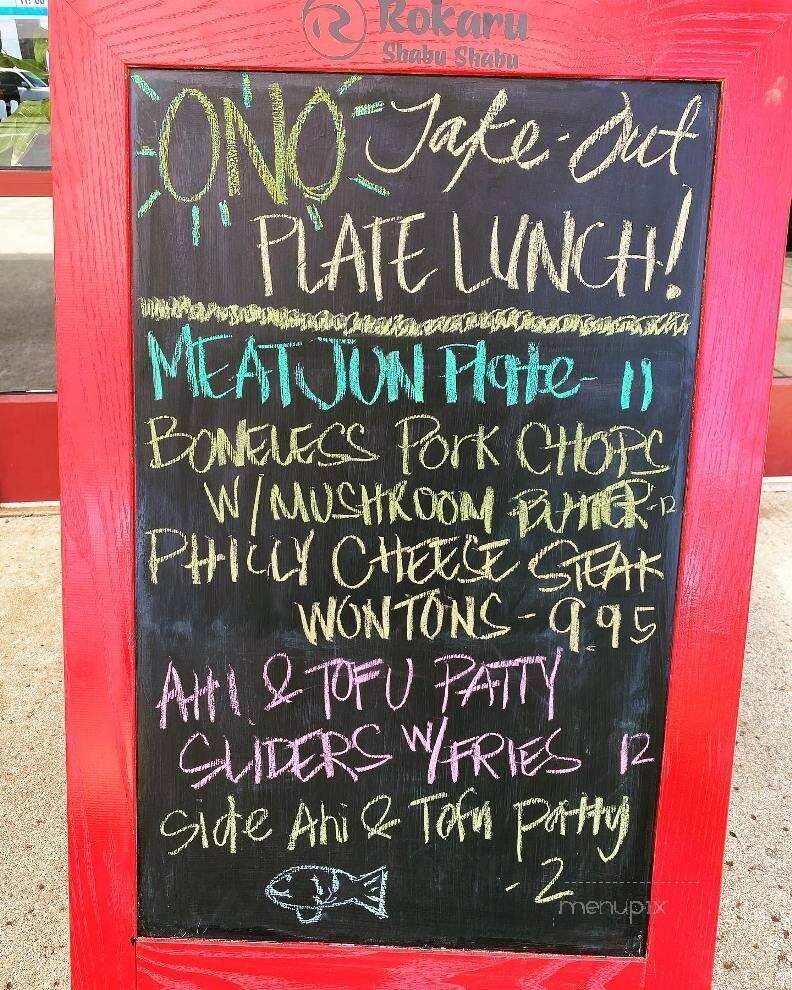 Rokaru
Shabu Shabu
ONO Take-Out
PLATE LUNCH!
MEAT JUN Plate- 11
BONELESS Pork CHOPS
W/MUSHROOM BUTTER-12
PHILLY CHEESE STEAK
WONTONS-9.95
AHI & TOFU PATTY
SLIDERS W/FRIES 12
Side Ahi & Tofu Patty
-2
menupix